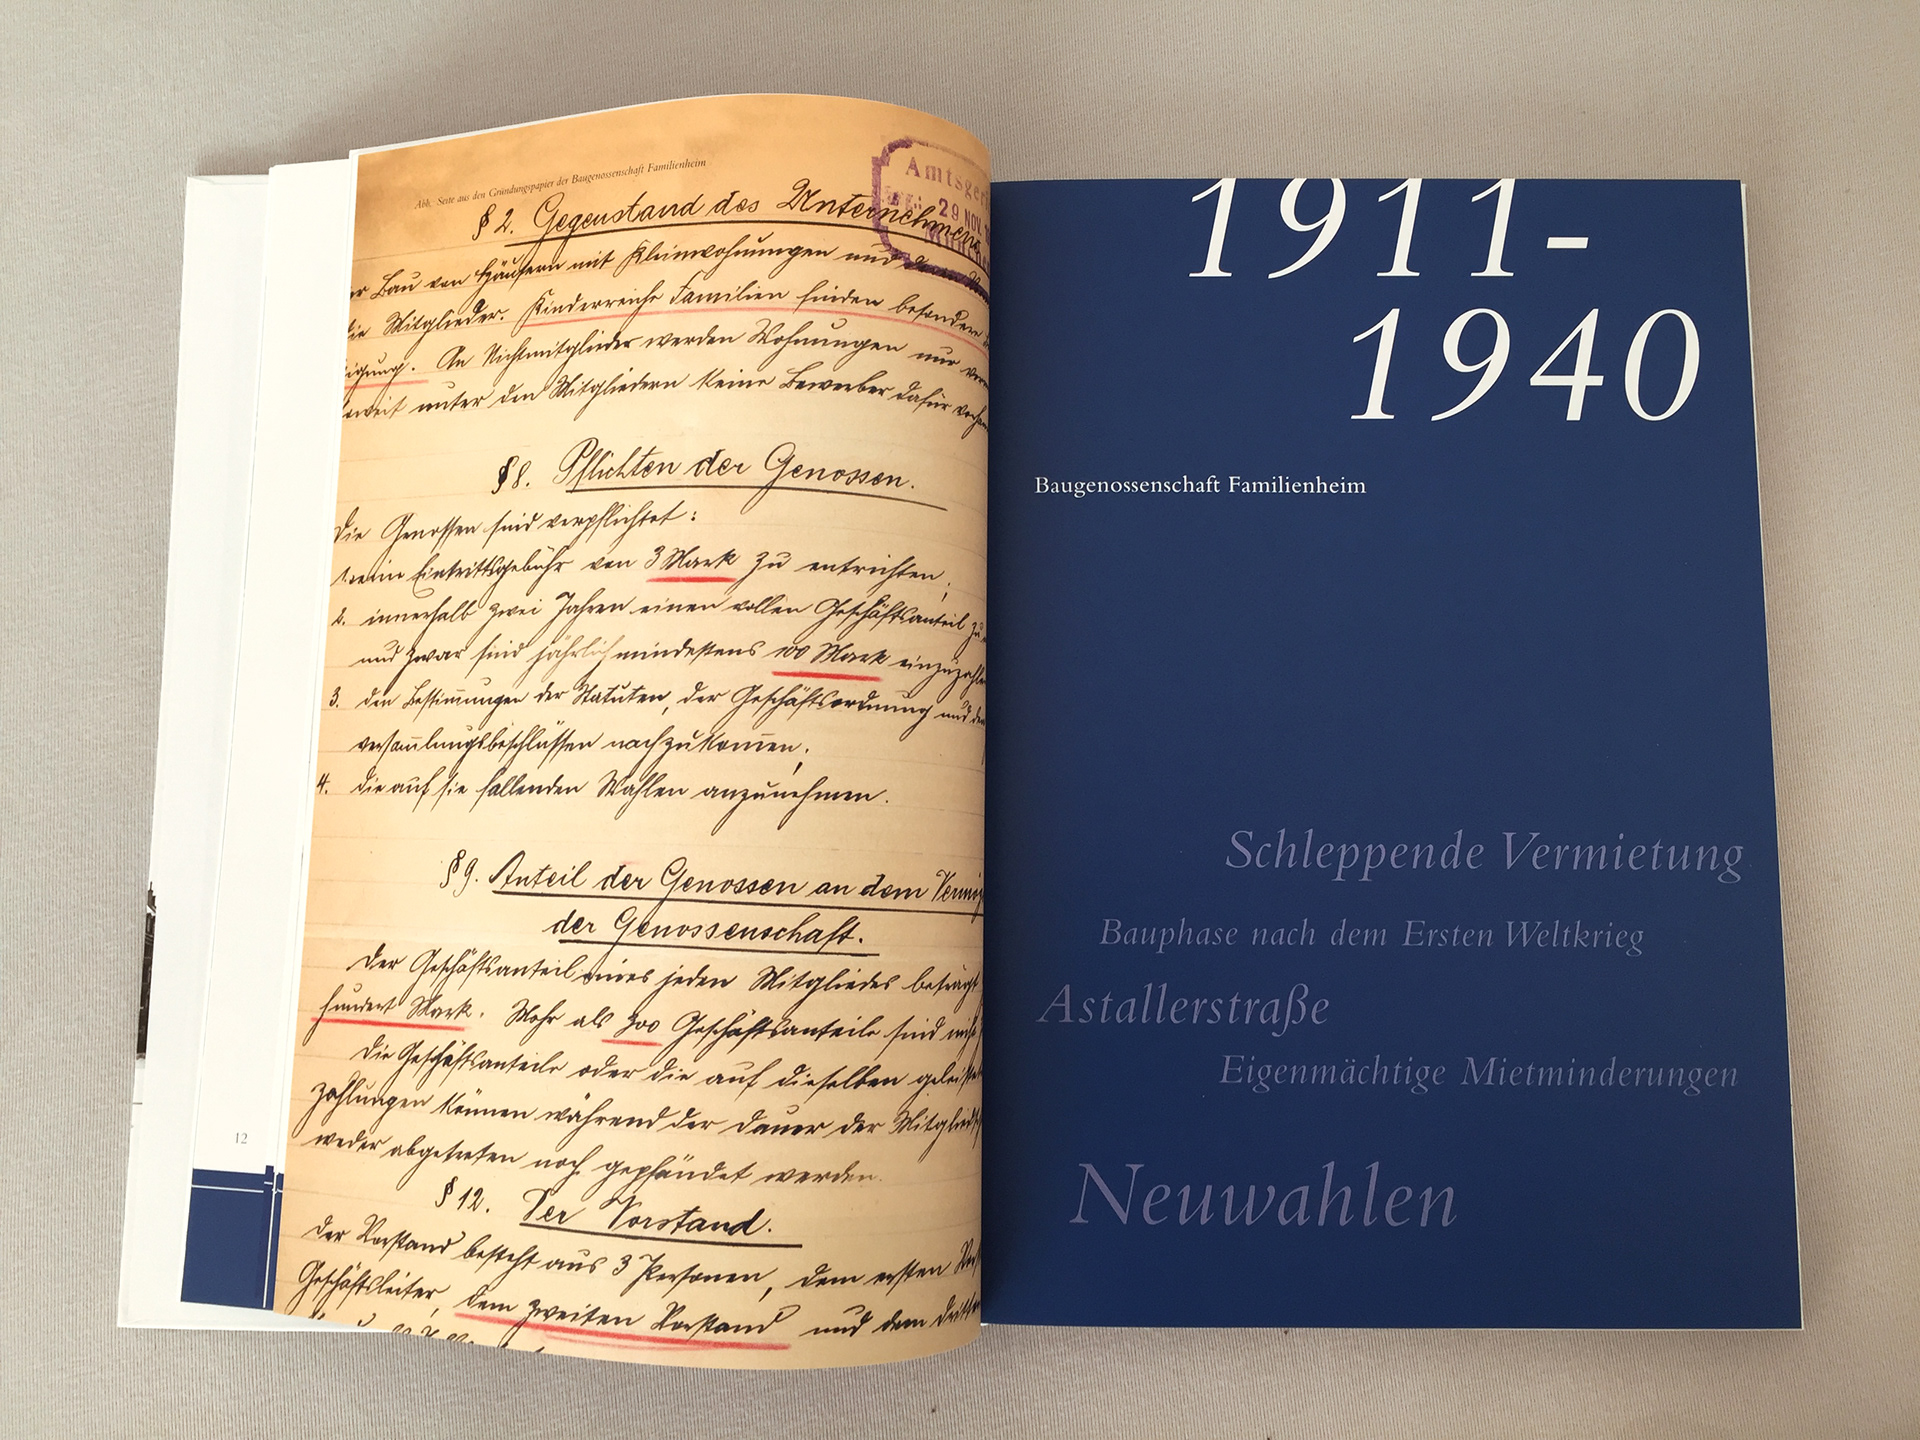 Abb. Seite aus den Gründungspapier der Baugenossenschaft Familienheim
Amtsger
29 NOV.
§ 2. Gegenstand des Unternehmens
Bau von Häusern mit Kleinwohnungen und deren
die Mitglieder. Kinderreiche Familien finden besondere
igung. An Nichtmitglieder werden Wohnungen nur
soweit unter den Mitgliedern keine Bewerber dafür
§ 8. Pflichten der Genossen.
Die Genossen sind verpflichtet:
1. ein Eintrittsgebühr von 3 Mark zu entrichten,
2. innerhalb zwei Jahren einen vollen Geschäftsanteil zu
und zwar sind jährlich mindestens 100 Mark einzuzahlen
3. den Bestimmungen der Statuten, der Geschäftsordnung und den
versammlungsbeschlüssen nachzukommen,
4. die auf sie fallenden Wahlen anzunehmen.
§ 9. Anteil der Genossen an dem Vermög
der Genossenschaft.
Der Geschäftsanteil eines jeden Mitgliedes beträgt
hundert Mark. Mehr als 300 Geschäftsanteile sind
Die Geschäftsanteile oder die auf dieselben geleistet
Zahlungen können während der Dauer der Mitglieds
weder abgetreten noch gepfändet werden.
§ 12. Der Vorstand.
Der Vorstand besteht aus 3 Personen, dem ersten
Geschäftsleiter, dem zweiten Vorstand und dem dritten
12
1911-
1940
Baugenossenschaft Familienheim
Schleppende Vermietung
Bauphase nach dem Ersten Weltkrieg
Astallerstraße
Eigenmächtige Mietminderungen
Neuwahlen